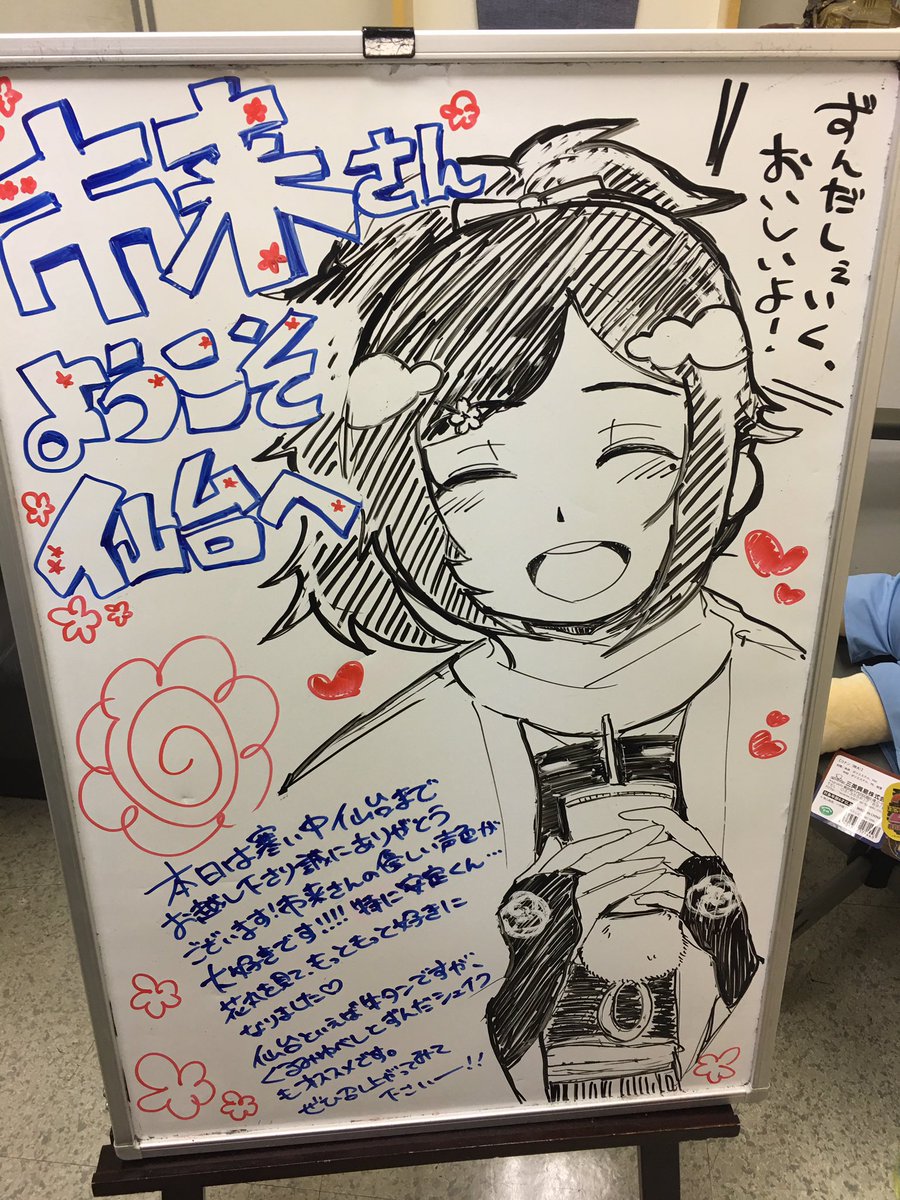 市来さん
ようこそ
仙台へ
ずんだしぇいく、
おいしいよ!
本日は寒い中仙台まで
お越し下さり誠にありがとう
ございます!市来さんの優しい声色が
大好きです!!!! 特に安定くん…
花丸を見て、もっともっと好きに
なりました♡
仙台といえば牛タンですが、
くるみゆべしとずんだシェイク
もオススメです。
ぜひ召し上がってみて
下さいー!!